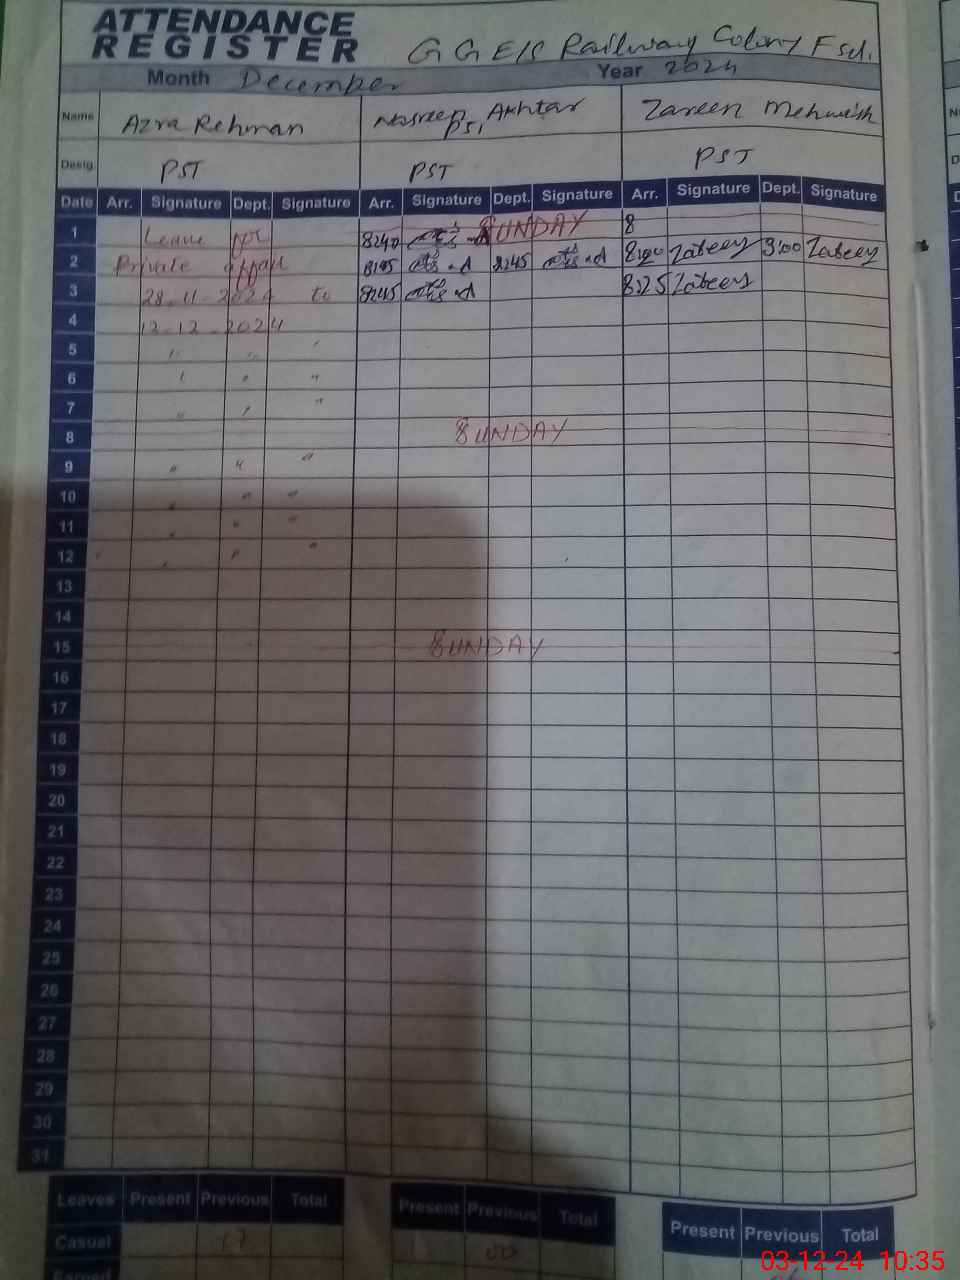 ATTENDANCE
REGISTER G G E/S Railway Colony Fsd.
Month December Year 2024
Name Azra Rehman Nasreen Akhtar Zareen Mehwish
Desig. PST PST PST
Date Arr. Signature Dept. Signature Arr. Signature Dept. Signature Arr. Signature Dept. Signature
1 Leave for 8:40 SUNDAY 8
2 Private affair 8:45 2:45 8:00 Zabeey 3:00 Zabeey
3 28-11-2024 to 8:45 8:25 Zabeey
4 12-12-2024
5 " " "
6 " " "
7 " " "
8 SUNDAY
9 " " "
10 " " "
11 " " "
12 " " "
13
14
15 SUNDAY
16
17
18
19
20
21
22
23
24
25
26
27
28
29
30
31
Leaves Present Previous Total Present Previous Total Present Previous Total
Casual
03-12-24 10:35